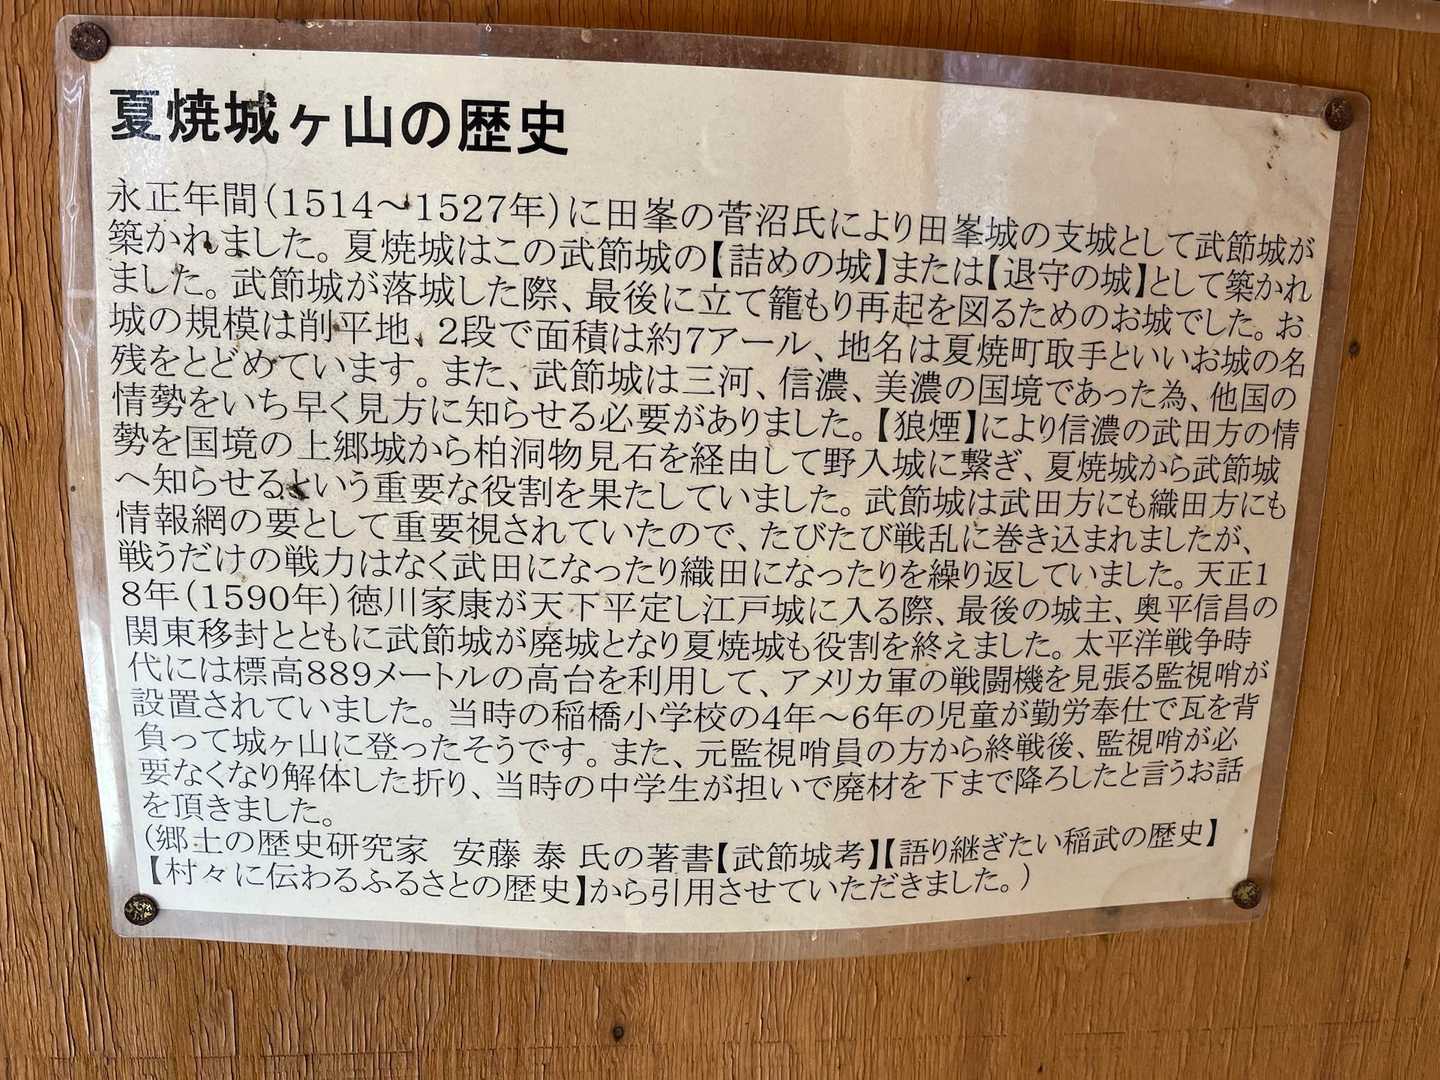 夏焼城ヶ山の歴史
永正年間(1514～1527年)に田峯の菅沼氏により田峯城の支城として武節城が
築かれました。夏焼城はこの武節城の【詰めの城】または【退守の城】として築かれ
ました。武節城が落城した際、最後に立て籠もり再起を図るためのお城でした。お
城の規模は削平地、2段で面積は約7アール、地名は夏焼町取手といいお城の名
残をとどめています。また、武節城は三河、信濃、美濃の国境であった為、他国の
情勢をいち早く見方に知らせる必要がありました。【狼煙】により信濃の武田方の情
勢を国境の上郷城から柏洞物見石を経由して野入城に繋ぎ、夏焼城から武節城
へ知らせるという重要な役割を果たしていました。武節城は武田方にも織田方にも
情報網の要として重要視されていたので、たびたび戦乱に巻き込まれましたが、
戦うだけの戦力はなく武田になったり織田になったりを繰り返していました。天正1
8年(1590年)徳川家康が天下平定し江戸城に入る際、最後の城主、奥平信昌の
関東移封とともに武節城が廃城となり夏焼城も役割を終えました。太平洋戦争時
代には標高889メートルの高台を利用して、アメリカ軍の戦闘機を見張る監視哨が
設置されていました。当時の稲橋小学校の4年～6年の児童が勤労奉仕で瓦を背
負って城ヶ山に登ったそうです。また、元監視哨員の方から終戦後、監視哨が必
要なくなり解体した折り、当時の中学生が担いで廃材を下まで降ろしたと言うお話
を頂きました。
(郷土の歴史研究家　安藤 泰 氏の著書【武節城考】【語り継ぎたい稲武の歴史】
【村々に伝わるふるさとの歴史】から引用させていただきました。)